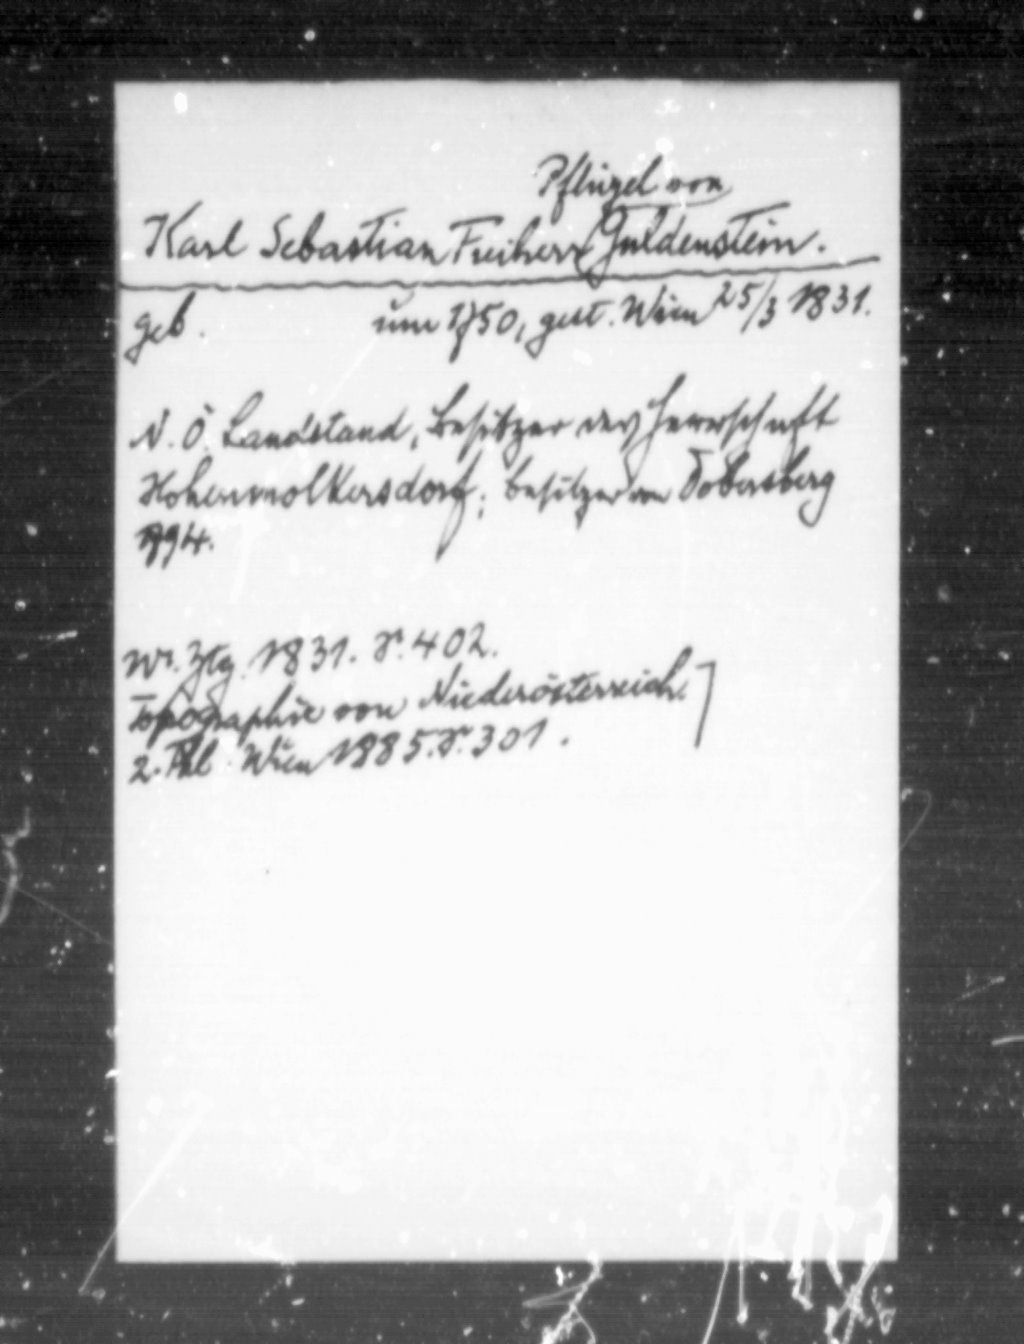 Pflügel von
Karl Sebastian Freiherr Guldenstein.
geb. um 1750, gest. Wien 25/3 1831.
N. Ö. Landstand, Besitzer der Herrschaft
Hohenwolkersdorf; Besitzer von Dobersberg
1794.
Wr. Ztg. 1831. S. 402.
Topographie von Niederösterreich.]
2. Bd. Wien 1885. S. 301.